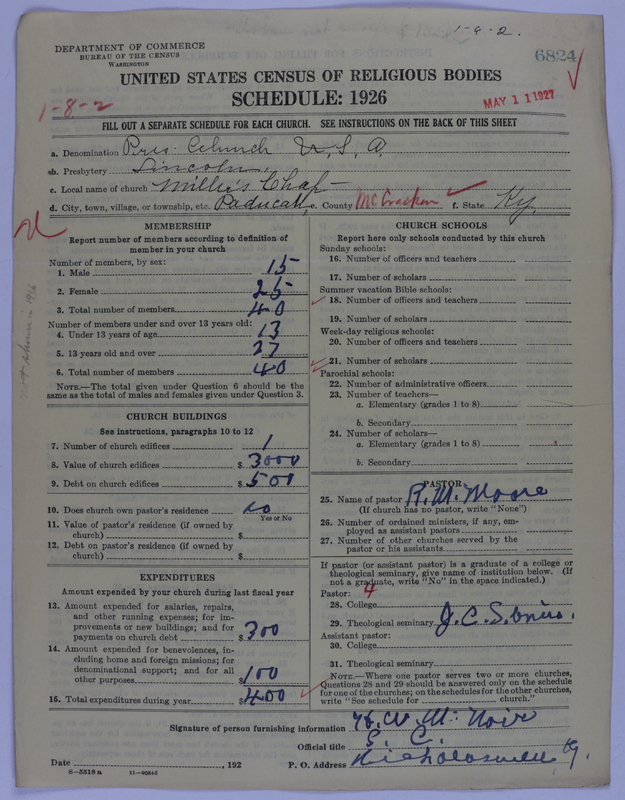 1-8-2.
DEPARTMENT OF COMMERCE
BUREAU OF THE CENSUS
WASHINGTON
6824
UNITED STATES CENSUS OF RELIGIOUS BODIES
SCHEDULE: 1926
1-8-2
MAY 11 1927
FILL OUT A SEPARATE SCHEDULE FOR EACH CHURCH. SEE INSTRUCTIONS ON THE BACK OF THIS SHEET
a. Denomination Pres. Church U, S, A,
sb. Presbytery Lincoln
c. Local name of church Millie's Chap
d. City, town, village, or township, etc. Paducah, e. County McCracken f. State Ky,
MEMBERSHIP
Report number of members according to definition of member in your church
Number of members, by sex:
1. Male 15
2. Female 25
3. Total number of members 40
Number of members under and over 13 years old:
4. Under 13 years of age 13
5. 13 years old and over 27
6. Total number of members 40
NOTE.—The total given under Question 6 should be the same as the total of males and females given under Question 3.
not shown in 1916
CHURCH BUILDINGS
See instructions, paragraphs 10 to 12
7. Number of church edifices 1
8. Value of church edifices $ 3000
9. Debt on church edifices $ 500
10. Does church own pastor's residence no
Yes or No
11. Value of pastor's residence (if owned by church) $
12. Debt on pastor's residence (if owned by church) $
EXPENDITURES
Amount expended by your church during last fiscal year
13. Amount expended for salaries, repairs, and other running expenses; for improvements or new buildings; and for payments on church debt $ 300
14. Amount expended for benevolences, including home and foreign missions; for denominational support; and for all other purposes $ 100
15. Total expenditures during year $ 400
CHURCH SCHOOLS
Report here only schools conducted by this church
Sunday schools:
16. Number of officers and teachers
17. Number of scholars
Summer vacation Bible schools:
18. Number of officers and teachers
19. Number of scholars
Week-day religious schools:
20. Number of officers and teachers
21. Number of scholars
Parochial schools:
22. Number of administrative officers
23. Number of teachers—
a. Elementary (grades 1 to 8)
b. Secondary
24. Number of scholars—
a. Elementary (grades 1 to 8)
b. Secondary
PASTOR
25. Name of pastor R. M. Moore
(If church has no pastor, write "None")
26. Number of ordained ministers, if any, employed as assistant pastors
27. Number of other churches served by the pastor or his assistants
If pastor (or assistant pastor) is a graduate of a college or theological seminary, give name of institution below. (If not a graduate, write "No" in the space indicated.)
Pastor: 4
28. College
29. Theological seminary J. C. S. Univ.
Assistant pastor:
30. College
31. Theological seminary
NOTE.—Where one pastor serves two or more churches, Questions 28 and 29 should be answered only on the schedule for one of the churches; on the schedules for the other churches, write "See schedule for church."
Signature of person furnishing information
Official title S. C.
Date , 192 P. O. Address Nicholasville Ky.
8—5518a 11—9054d